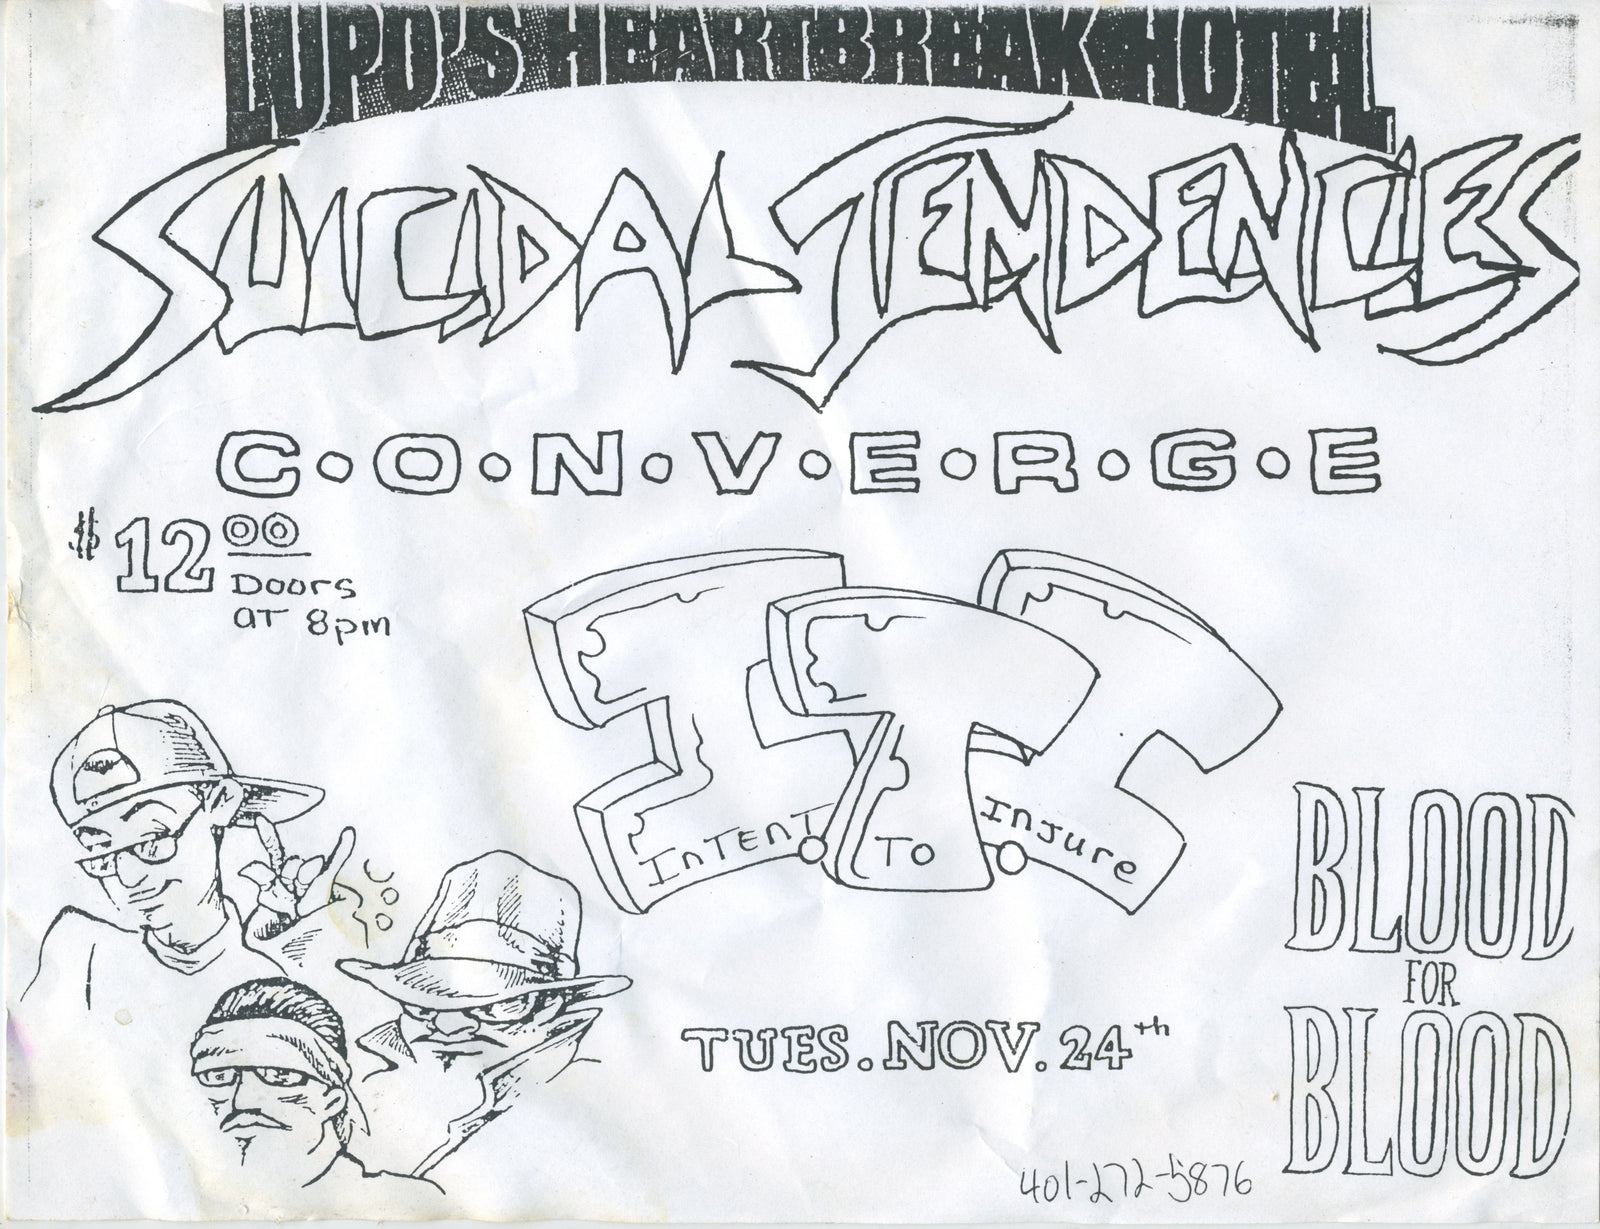 LUPO'S HEARTBREAK HOTEL
SUICIDAL TENDENCIES
C•O•N•V•E•R•G•E
$12 00
Doors
at 8pm
ITI
Intent To Injure
BLOOD
FOR
BLOOD
TUES. NOV. 24th
401-272-5876